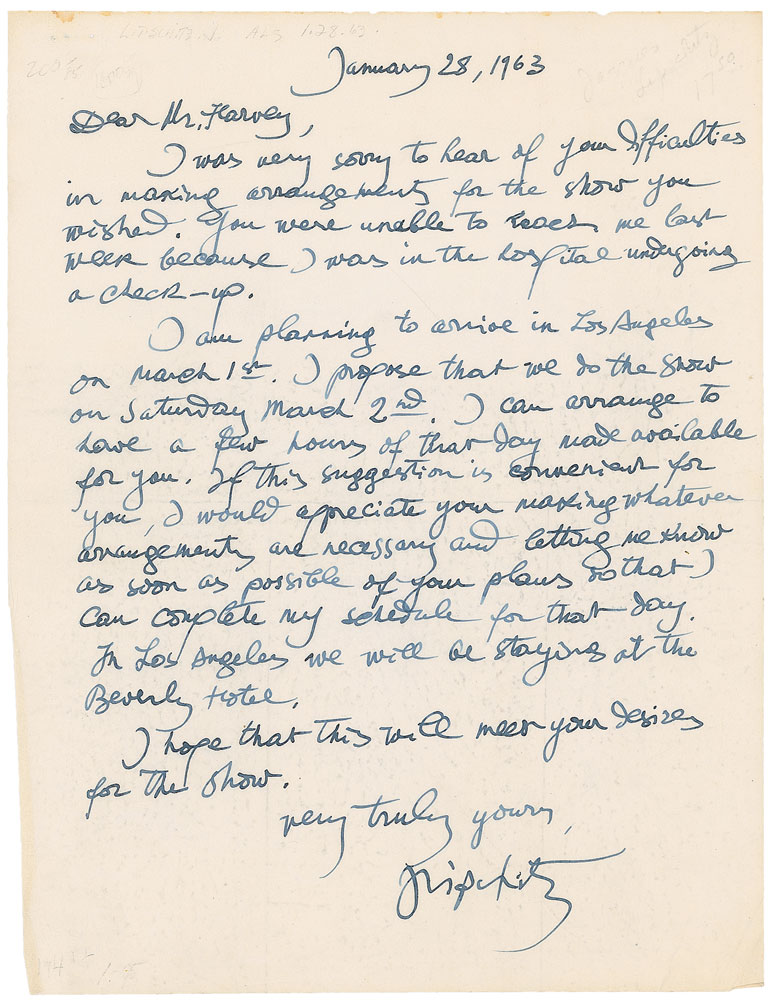 LIPSCHITZ, J. ALS 1.28.63.
January 28, 1963
Dear Mr. Harvey,
I was very sorry to hear of your difficulties
in making arrangements for the show you
wished. You were unable to reach me last
week because I was in the hospital undergoing
a check-up.
I am planning to arrive in Los Angeles
on March 1st. I propose that we do the show
on Saturday March 2nd. I can arrange to
have a few hours of that day made available
for you. If this suggestion is convenient for
you, I would appreciate your making whatever
arrangements are necessary and letting me know
as soon as possible of your plans so that I
can complete my schedule for that day.
In Los Angeles we will be staying at the
Beverly Hotel.
I hope that this will meet your desires
for the show.
very truly yours,
JLipchitz